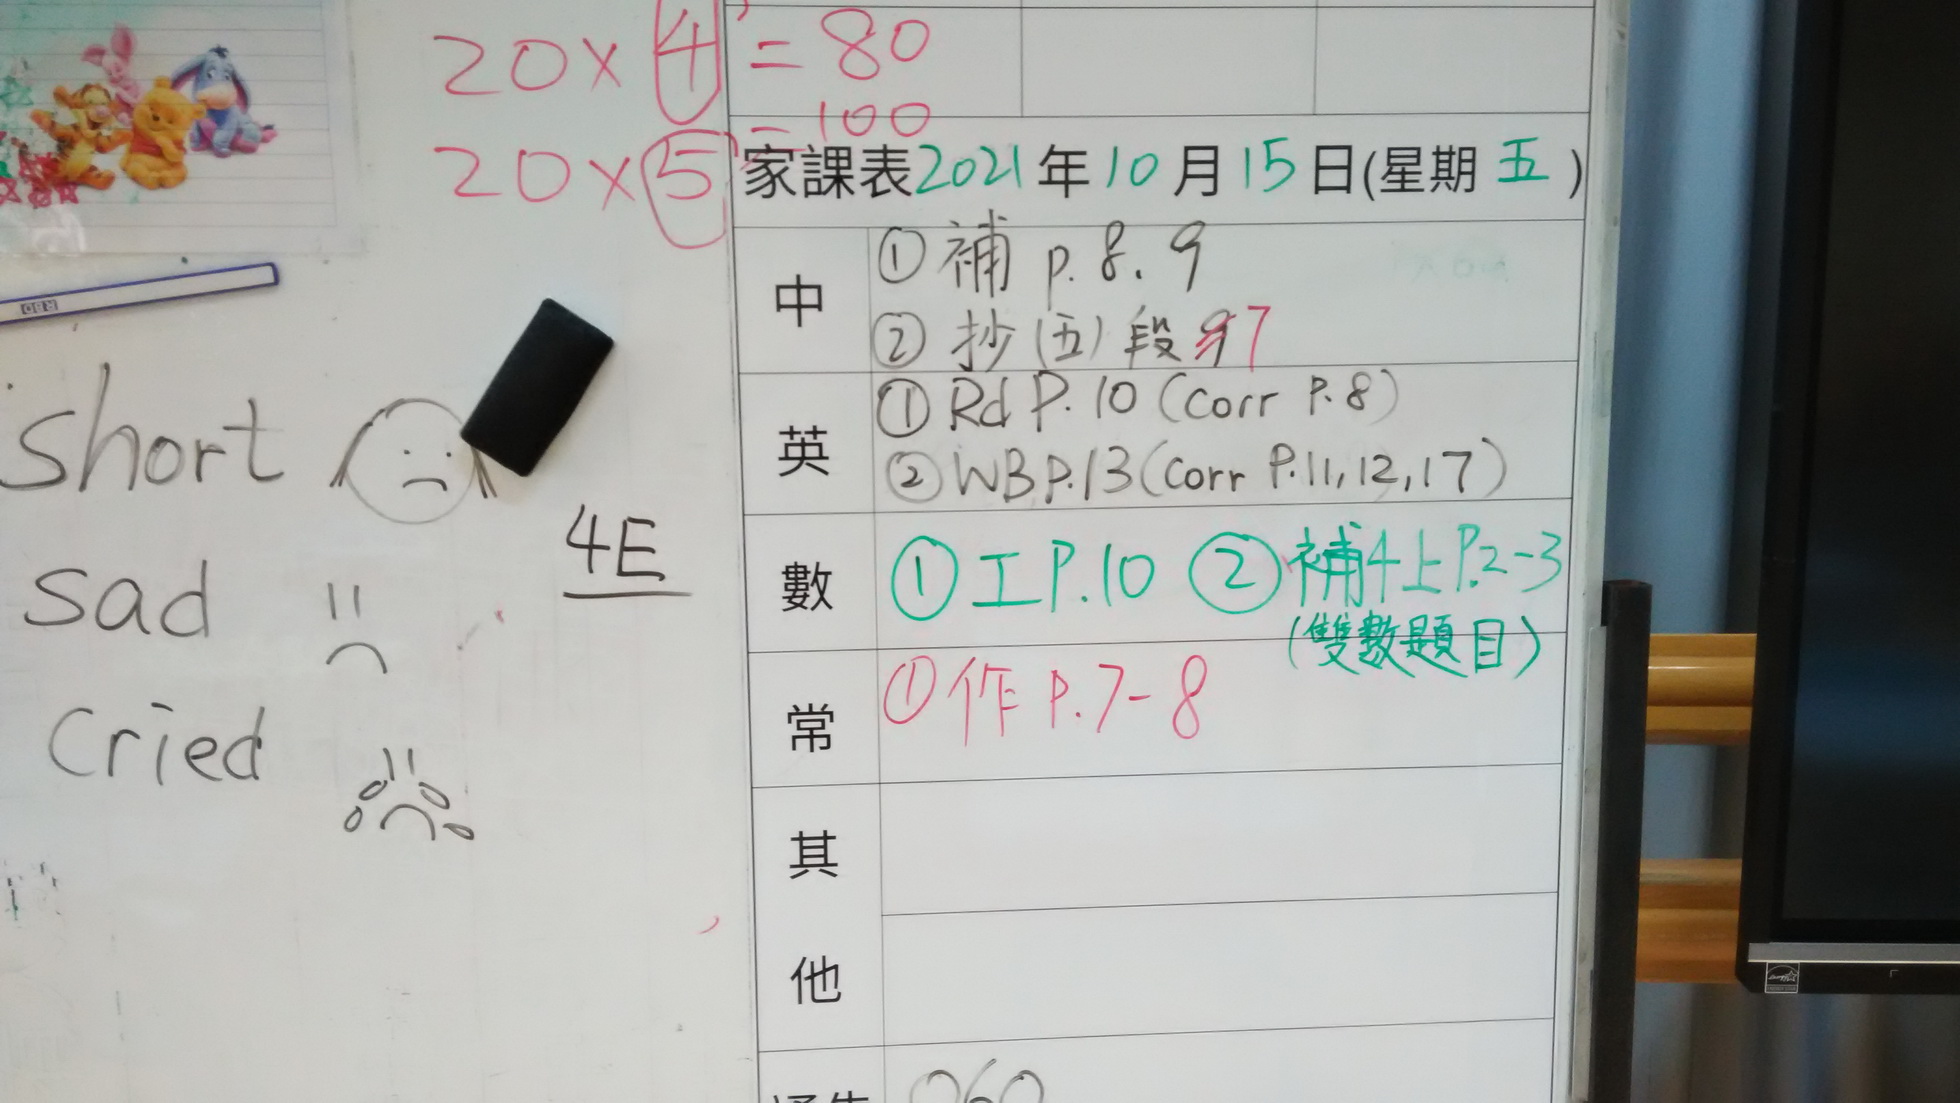 20×4 = 80
20×5 = 100
家課表2021年10月15日(星期五)
中
① 補 p. 8. 9
② 抄(五)段 7
英
① Rd P. 10 (Corr P. 8)
② WB P. 13 (Corr P. 11, 12, 17)
數
① 工 P. 10 ② 補4上 P. 2-3
(雙數題目)
常
① 作 P. 7-8
其
他
060
short
sad
cried
4E